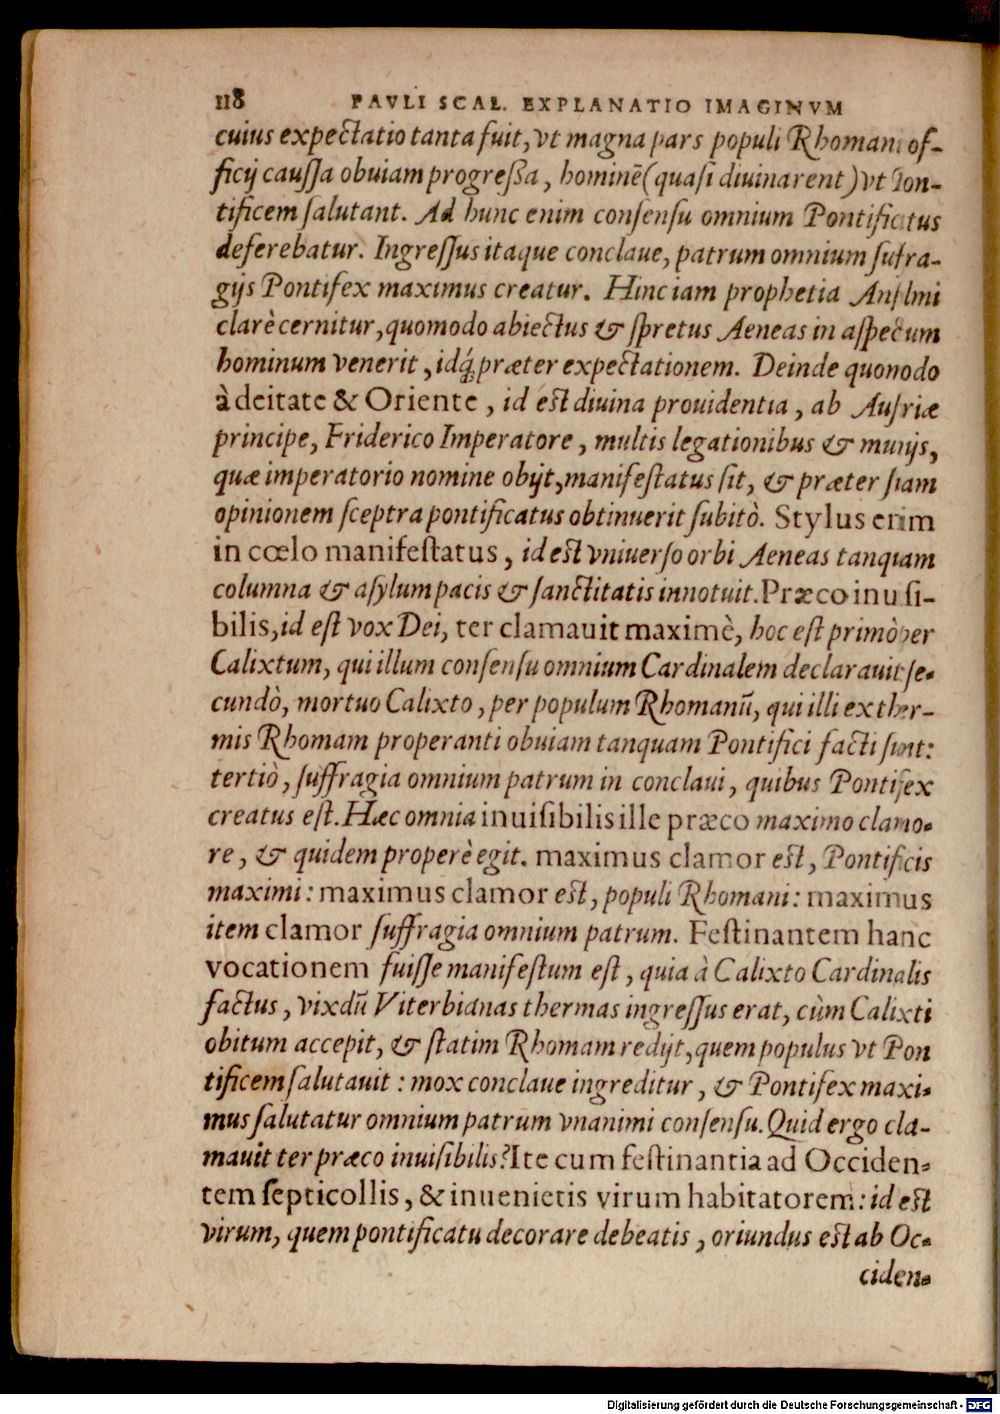 118 PAVLI SCAL. EXPLANATIO IMAGINVM
cuius expectatio tanta fuit, vt magna pars populi Rhomani of-
ficij cauſſa obuiam progreßa, hominē (quaſi diuinarent) vt Pon-
tificem ſalutant. Ad hunc enim conſenſu omnium Pontificatus
deferebatur. Ingreſſus itaque conclaue, patrum omnium ſufra-
gijs Pontifex maximus creatur. Hinc iam prophetia Anſelmi
clarè cernitur, quomodo abiectus & ſpretus Aeneas in aſpectum
hominum venerit, idq́; præter expectationem. Deinde quomodo
à deitate & Oriente, id eſt diuina prouidentia, ab Auſtriæ
principe, Friderico Imperatore, multis legationibus & munijs,
quæ imperatorio nomine obijt, manifeſtatus ſit, & præter ſuam
opinionem ſceptra pontificatus obtinuerit ſubitò. Stylus enim
in cœlo manifeſtatus, id eſt vniuerſo orbi Aeneas tanquam
columna & aſylum pacis & ſanctitatis innotuit. Præco inuiſi-
bilis, id eſt vox Dei, ter clamauit maximè, hoc eſt primò per
Calixtum, qui illum conſenſu omnium Cardinalem declarauit: ſe-
cundò, mortuo Calixto, per populum Rhomanū, qui illi ex ther-
mis Rhomam properanti obuiam tanquam Pontifici facti ſunt:
tertiò, ſuffragia omnium patrum in conclaui, quibus Pontifex
creatus eſt. Hæc omnia inuiſibilis ille præco maximo clamo-
re, & quidem properè egit. maximus clamor eſt, Pontificis
maximi: maximus clamor eſt, populi Rhomani: maximus
item clamor ſuffragia omnium patrum. Feſtinantem hanc
vocationem fuiſſe manifeſtum eſt, quia à Calixto Cardinalis
factus, vixdū Viterbianas thermas ingreſſus erat, cùm Calixti
obitum accepit, & ſtatim Rhomam redijt, quem populus vt Pon
tificem ſalutauit: mox conclaue ingreditur, & Pontifex maxi-
mus ſalutatur omnium patrum vnanimi conſenſu. Quid ergo cla-
mauit ter præco inuiſibilis? Ite cum feſtinantia ad Occiden-
tem ſepticollis, & inuenietis virum habitatorem: id eſt
virum, quem pontificatu decorare debeatis, oriundus eſt ab Oc-
ciden-
Digitalisierung gefördert durch die Deutsche Forschungsgemeinschaft - DFG